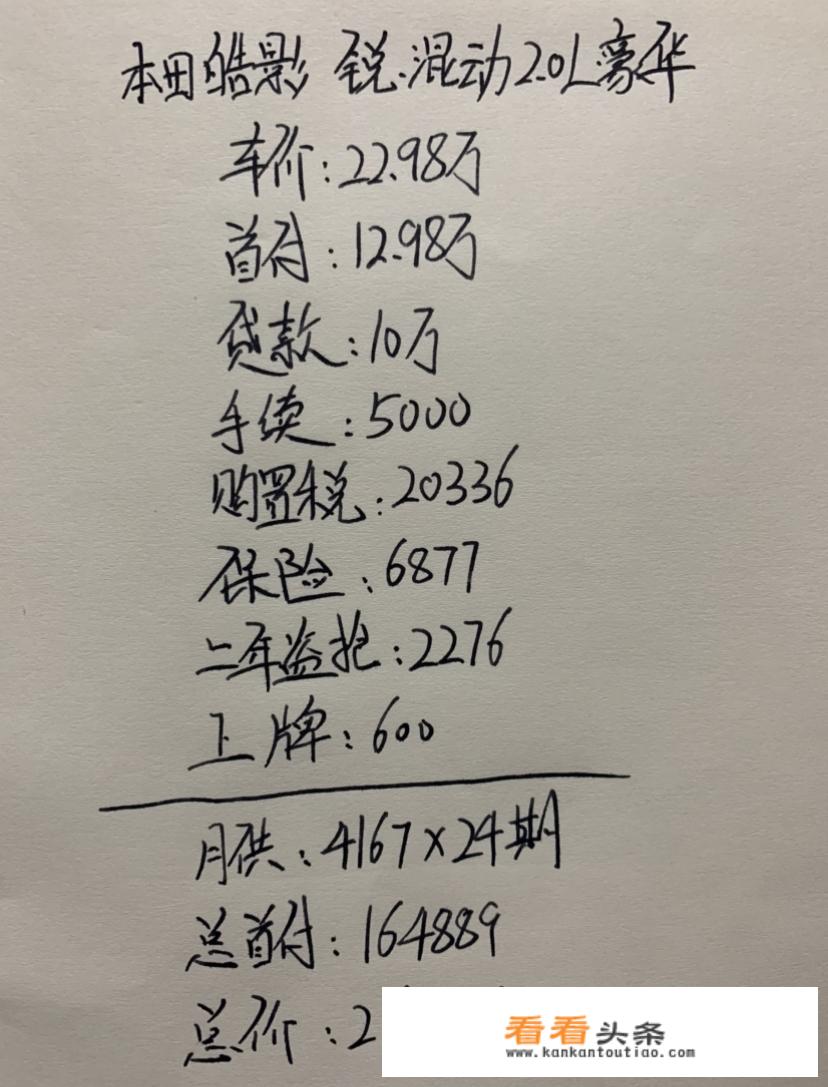 本田皓影 锐·混动2.0L豪华
车价:22.98万
首付:12.98万
贷款:10万
手续:5000
购置税:20336
保险:6877
二年盗抢:2276
上牌:600
月供:4167×24期
总首付:164889
总价:2
看看头条
www.kankantoutiao.com